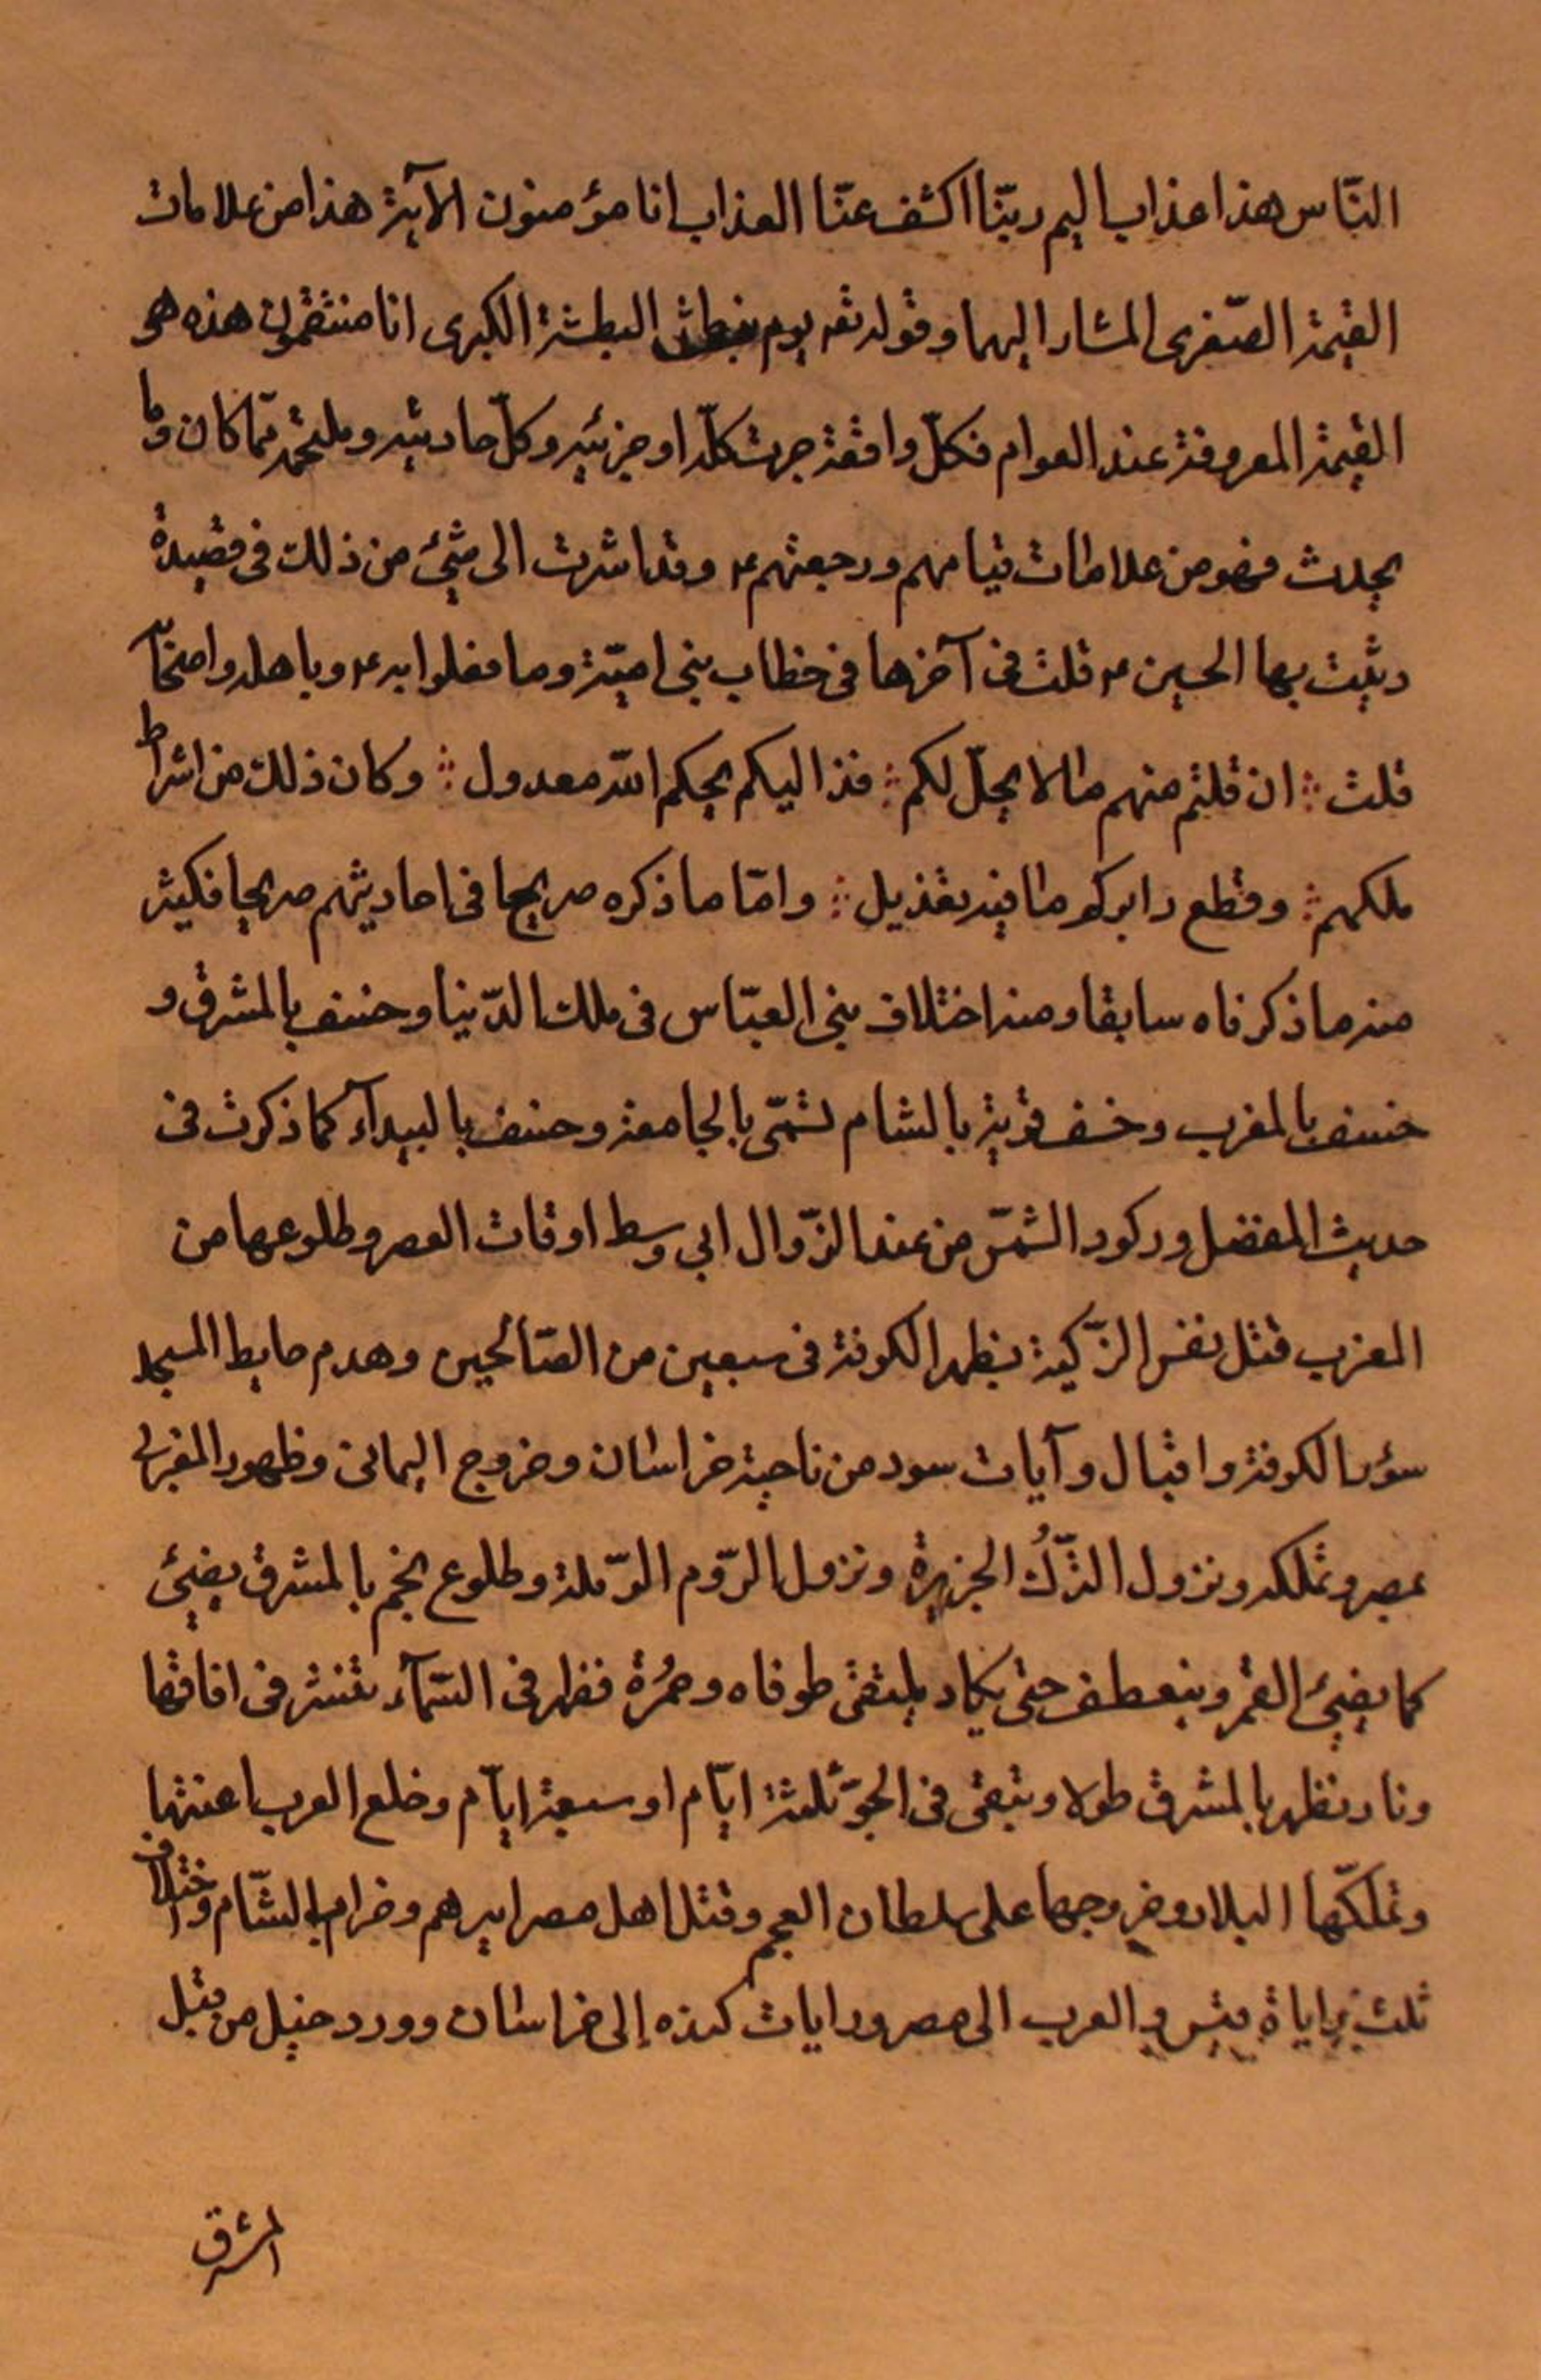 النّاس هذا عذاب اليم ربّنا اكشف عنّا العذاب انا مؤمنون الآية هذا من علامات
القيمة الصّغرى المشار اليهما وقوله تعـ يوم نبطش البطشة الكبرى انا منتقمون هذه هى
القيمة المعروفة عند العوام فكلّ واقعة جرت كلّه او جزئيه وكلّ حاديثه وملحمه ممّا كان وما
يحدث فهو من علامات قيامهم ورجعتهم ع وقد اشرت الى شئ من ذلك فى قصيدة
رثيت بها الحسين ع قلت فى آخرها فى خطاب بنى اميّة وما فعلوا به ع وباهله واصحابه
قلت ؞ ان قلتم منهم مالا يحلّ لكم ؞ فذا اليكم بحكم الله معدول ؞ وكان ذلك من اشراط
ملكهم ؞ وقطع دابركم مافيه تعذيل ؞ وامّا ما ذكره صريحا فى احاديثهم صريحا فكثير
منه ما ذكرناه سابقا ومنه اختلاف بنى العبّاس فى ملك الدّنيا وخسف بالمشرق و
خسف بالمغرب وخسف قرية بالشام تسمّى بالجامعة وخسف بالبيدآء كما ذكرت فى
حديث المفضل وركود الشمّس من عند الزّوال الى وسط اوقات العصر وطلوعها من
المغرب قتل نفس الزّكية بظهر الكوفة فى سبعين من الصّالحين وهدم حايط المسجد
سؤر الكوفة واقبال وآيات سود من ناحية خراسان وخروج اليمانى وظهور المغربى
بمصر وتملكه ونزول التّرك الجزيرة ونزول الرّوم الرّملة وطلوع نجم بالمشرق يضيئ
كما يضيئ القمر وينعطف حتى يكاد يلتقى طوفاه وحمُرة فظهر فى السّمآء تنشر فى افاقها
ونار تظهر بالمشرق طولا وتبقى فى الجوّ ثلثة ايّام او سبعة ايّام وخلع العرب اعنتها
وتملكّها البلاد وخروجها على سلطان العجم وقتل اهل مصر اميرهم وخراب الشّام واختلاف
ثلث براياة قيس والعرب الى مصر ورايات كنده إلى خراسان وورد خيل من قبل
المشرق